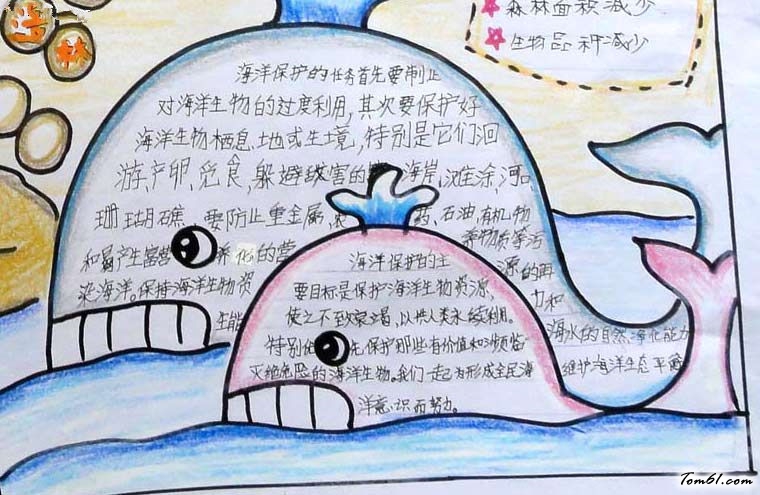 森林面积减少
生物品种减少
林
海洋保护的任务首先要制止
对海洋生物的过度利用,其次要保护好
海洋生物栖息地或生境,特别是它们洄
游、产卵、觅食、躲避敌害的 海岸、涂、河口
珊瑚礁。要防止重金属、农 药、石油、有机物
和易产生富营 养化的营 养物质等污
染海洋。保持海洋生物资 源的再
生能 力和
海水的自然净化能力
维护海洋生态平衡
海洋保护的主
要目标是保护海洋生物资源,
使之不致衰竭,以供人类永续利用。
特别 先保护那些有价值和濒临
灭绝危险的海洋生物。我们一起为形成全民海
洋意识而努力。
Tom61.com